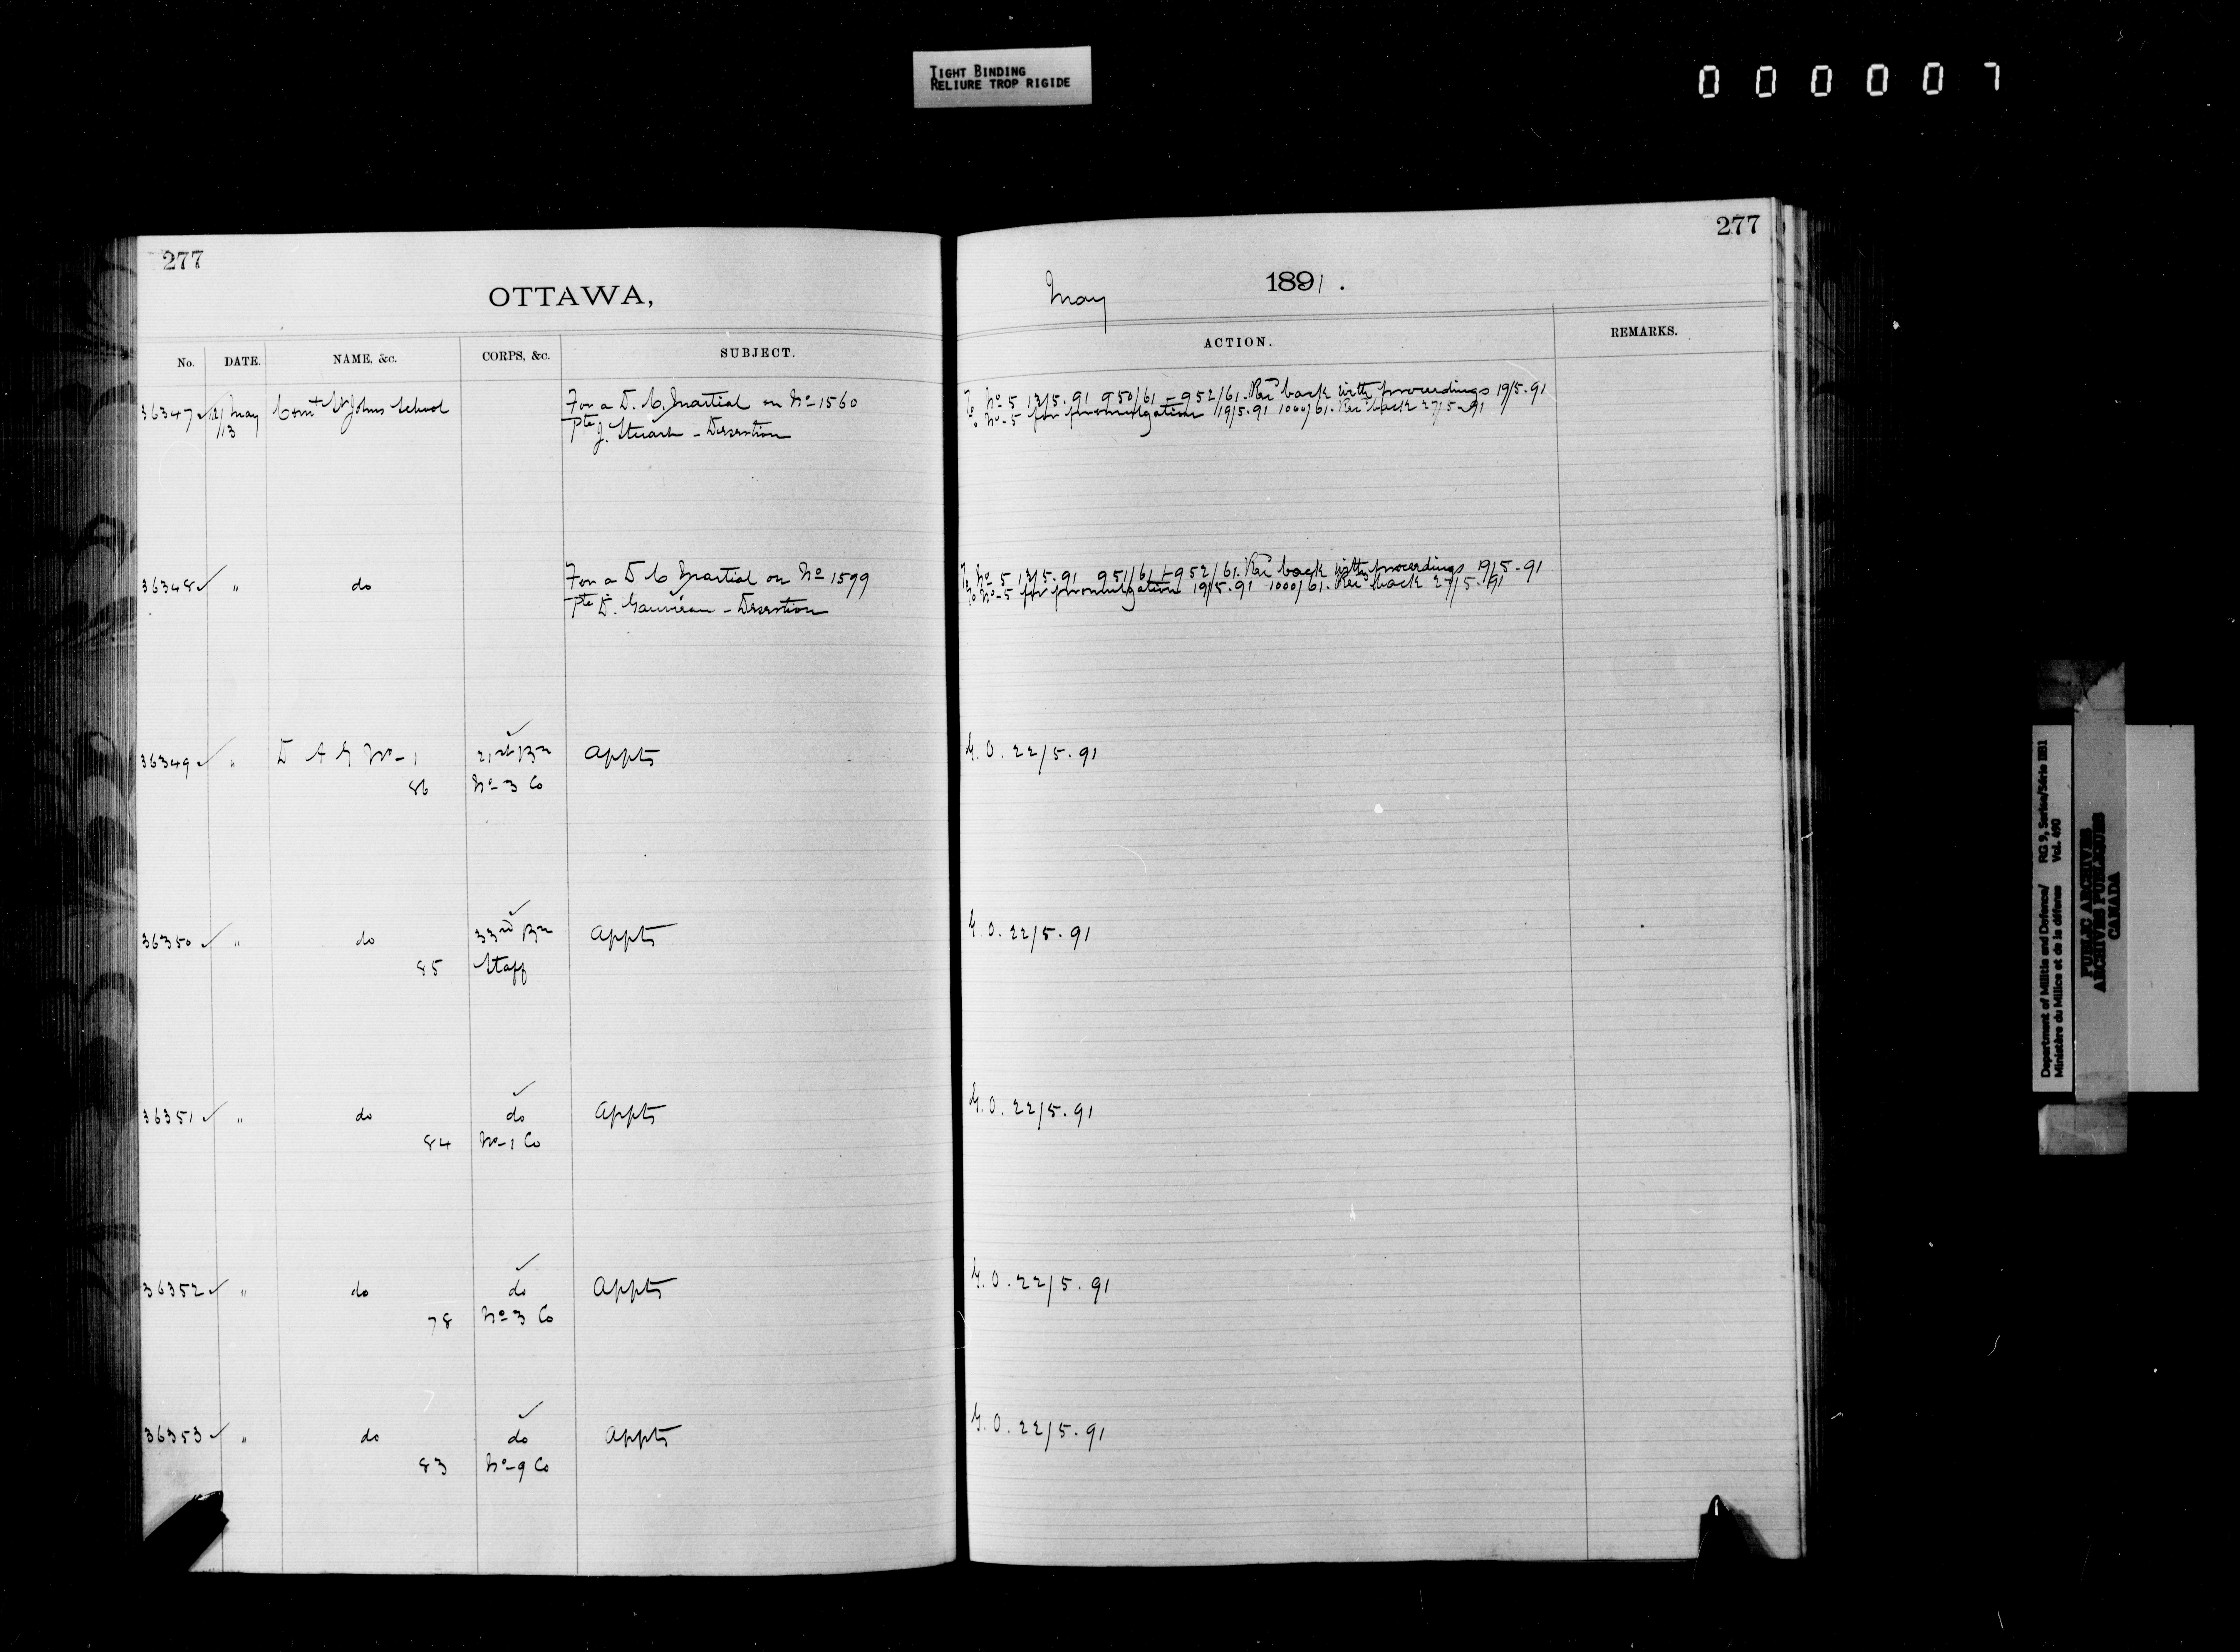 TIGHT BINDING
RELIURE TROP RIGIDE
000007
277
OTTAWA,
No. DATE. NAME, &c. CORPS, &c. SUBJECT.
36347 12/May Comt St Johns School For a D. C. Martial on No 1560
13 Pte J. Stuart - Desertion
36348 " do For a D C Martial on No 1599
Pte D. Gauvreau - Desertion
36349 " D A G No-1 21st Bn Appts
86 No-3 Co
36350 " do 33rd Bn Appts
85 Staff
36351 " do do Appts
84 No-1 Co
36352 " do do Appts
78 No 3 Co
36353 " do do Appts
83 No-9 Co
277
May 1891.
ACTION. REMARKS.
To No 5 13/5.91 950/61 - 952/61. Recd back with proceedings 19/5.91
To No-5 for promulgation 19/5.91 1000/61. Recd back 27/5.91
To No 5 13/5.91 951/61 + 952/61. Recd back with proceedings 19/5.91
To No-5 for promulgation 19/5.91 1000/61. Recd back 27/5.91
G.O. 22/5.91
G.O. 22/5.91
G.O. 22/5.91
G.O. 22/5.91
G.O. 22/5.91
Department of Militia and Defence/ RG 9, Series/Série IIB1
Ministère du Milice et de la défense Vol. 490
PUBLIC ARCHIVES
ARCHIVES PUBLIQUES
CANADA